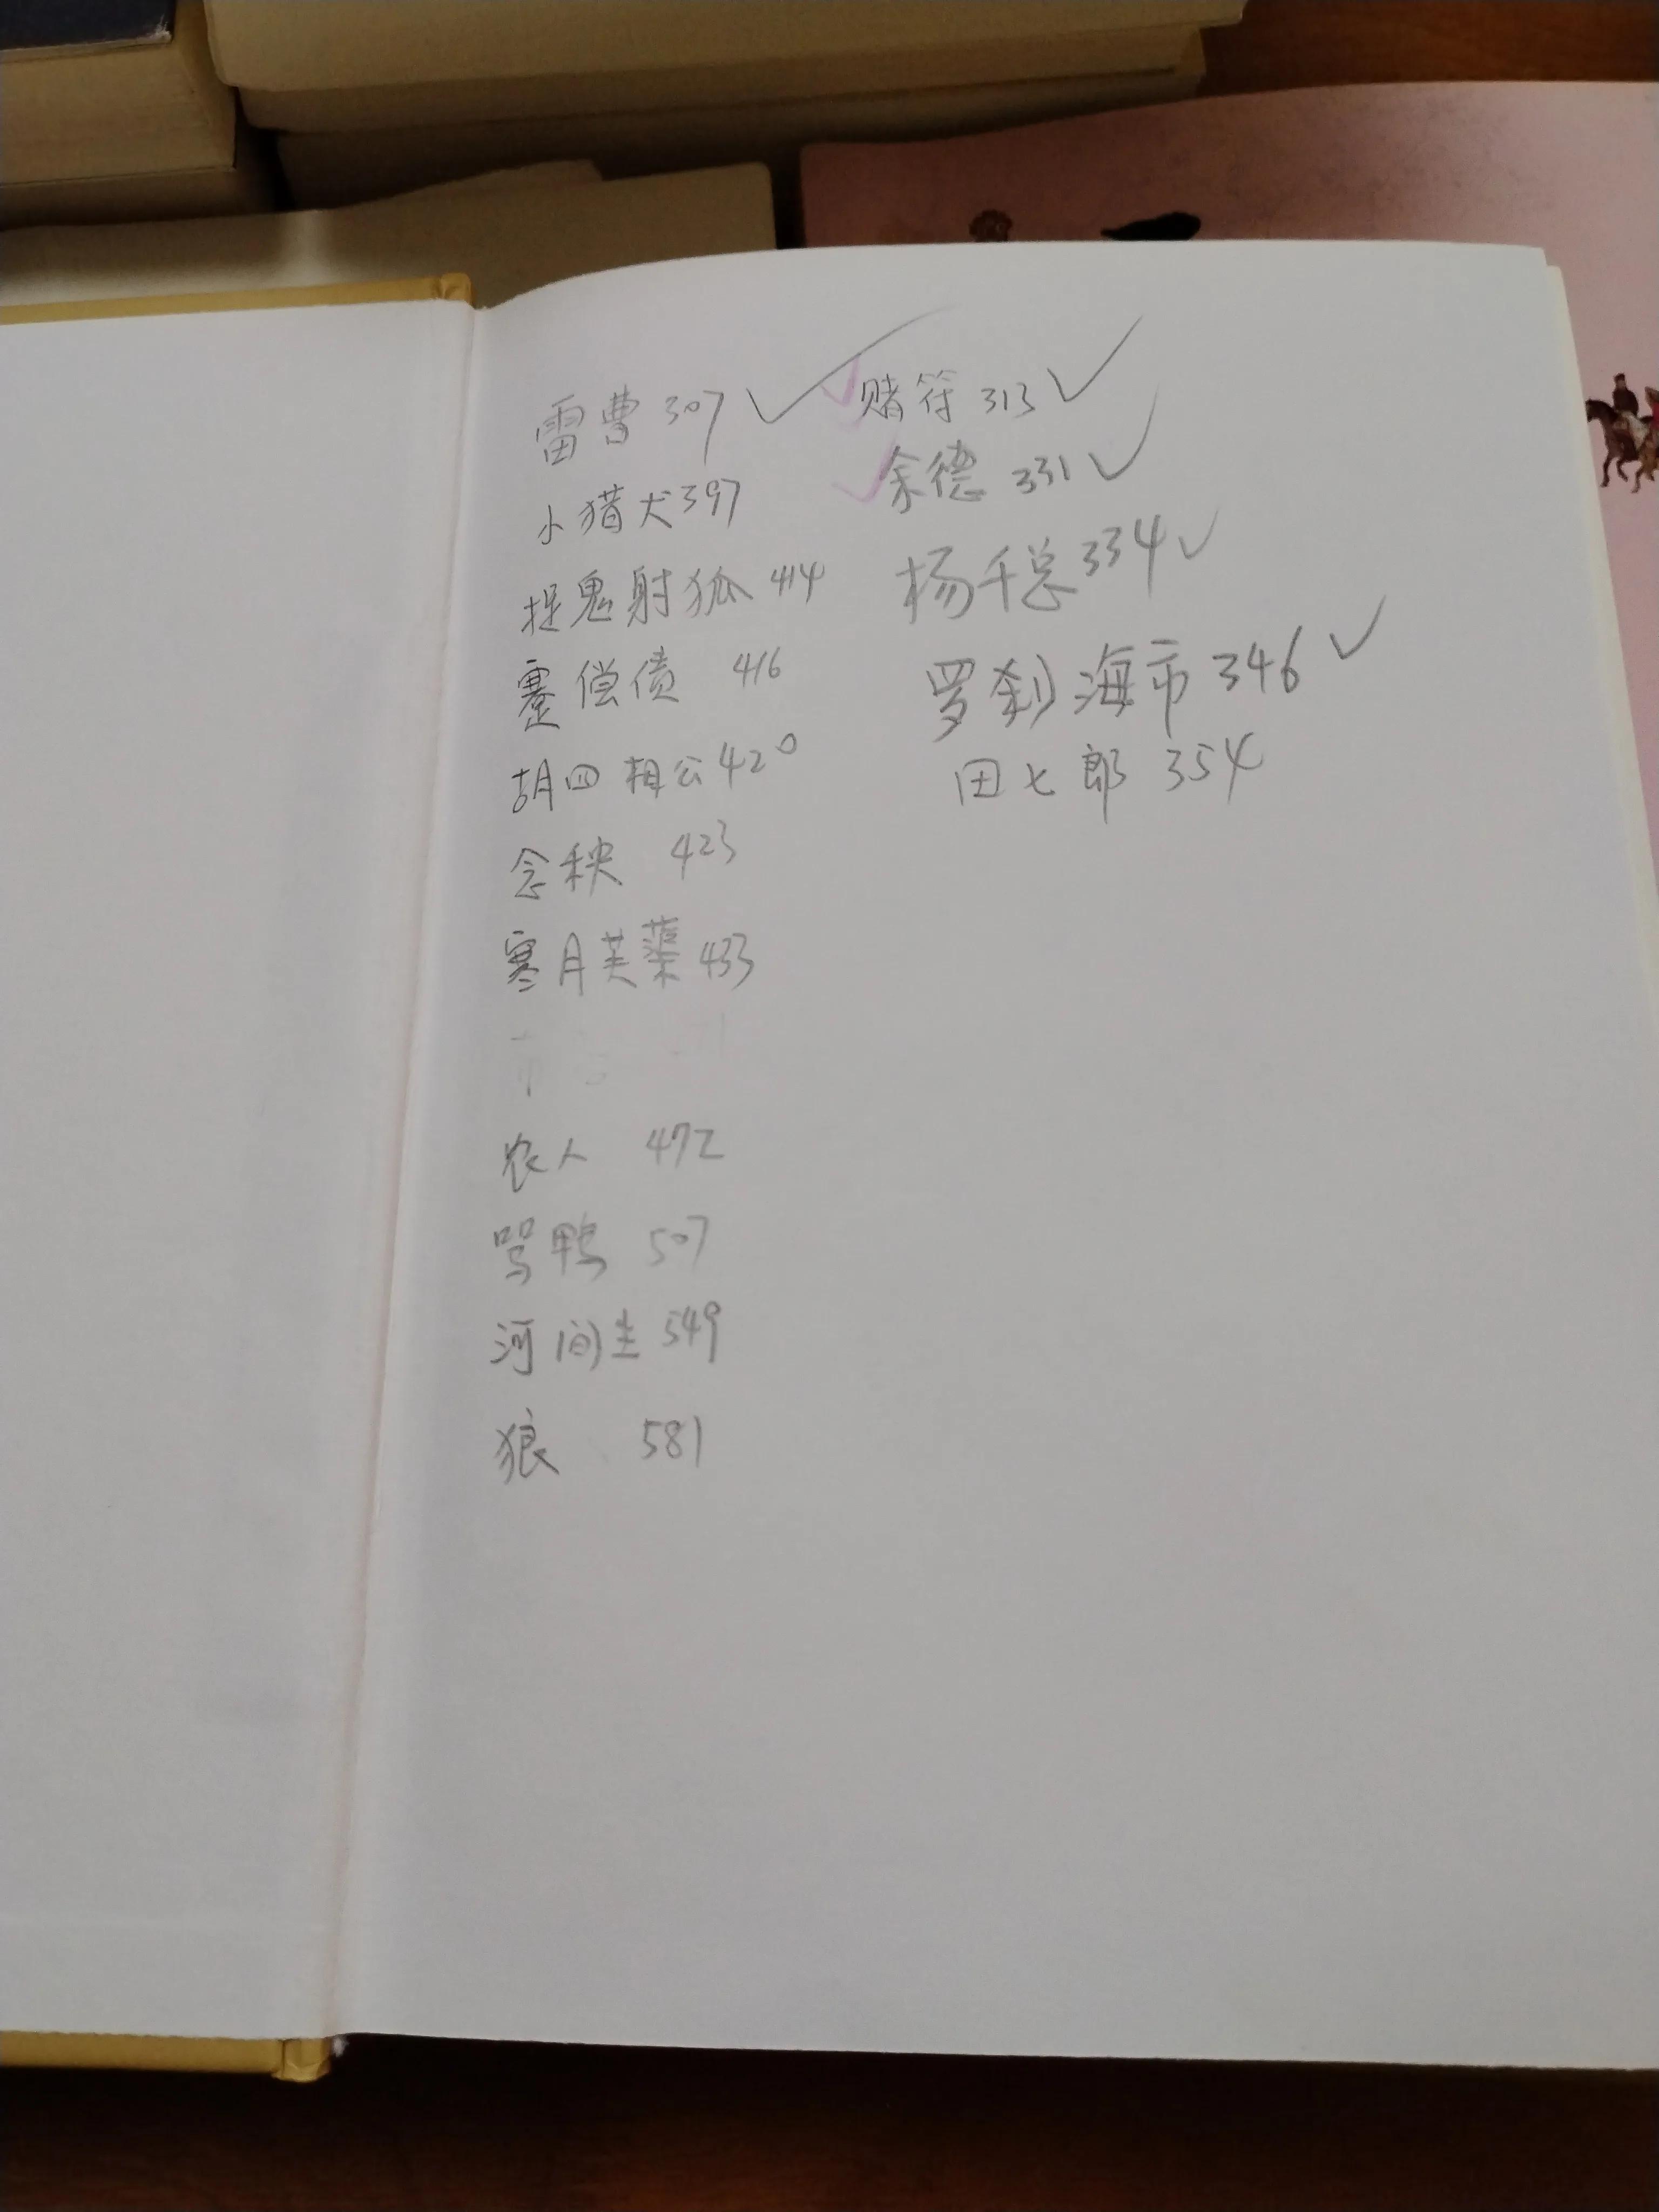 雷曹 307
小猎犬 397
捉鬼射狐 414
蹇偿债 416
胡四相公 420
念秧 423
寒月芙蕖 433
农人 472
骂鸭 507
河间生 549
狼 581
赌符 313
余德 331
杨千总 334
罗刹海市 346
田七郎 354